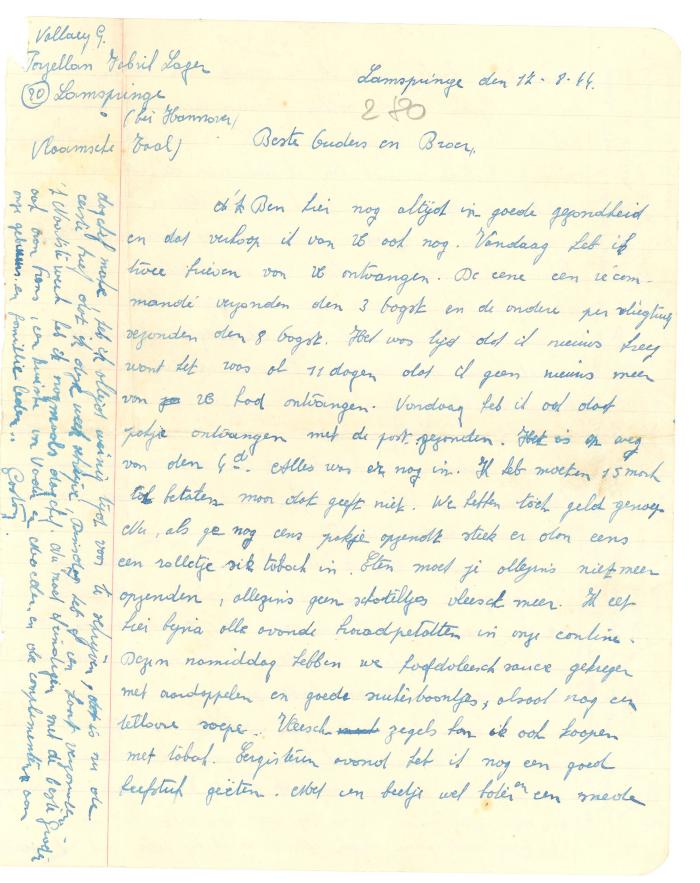 Vollaey G.
Porzellan Fabrik Lager
(20) Lamspringe
(bei Hannover)
Vlaamsche Taal)
Lamspringe den 12-8-44.
280
Beste Ouders en Broer,
Ben hier nog altijd in goede gezondheid
en dat verhoop ik van U ook nog. Vandaag heb ik
twee brieven van U ontvangen. De eene een récom-
mandé verzonden den 3 Oogst en de andere per vliegtuig
verzonden den 8 Oogst. Het was tijd dat ik nieuws kreeg
want het was al 11 dagen dat ik geen nieuws meer
van U had ontvangen. Vandaag heb ik ook dat
pakje ontvangen met de post gezonden. Het is op weg
van den 4d. Alles was er nog in. Ik heb moeten 15 mark
betalen maar dat geeft niet. We hebben toch geld genoeg
Nu, als ge nog eens pakje opzendt steek er dan eens
een rolletje tabach in. Eten moet je allegins niet meer
opzenden, allegins geen schoteltjes vleesch meer. Ik eet
hier bijna alle avonde braadpetatten in onze cantine.
Dezen namiddag hebben we hoofdvleesch sauce gekregen
met aardappelen en goede suikerboontjes, alsook nog een
telloore soepe. Vleesch zegels kan ik ook koopen
met tabak. Eergisteren avond heb ik nog een goed
beefstuk geëten. Met een beetje wel boter en een sneede
dagelij mate, heb ik altijd weinig tijd voor te schrijven, dat is nu de
eerste brief dat ik deze week schrijve, Dinsdag heb ik een kaart verzonden
't Naaste week heb ik nogmaals dagelij. Nu zal ik eindigen met de beste Groeten
ook aan Frans, en families in Vaal en en de complimenten aan
onze geburen en familie leden.. Gaston